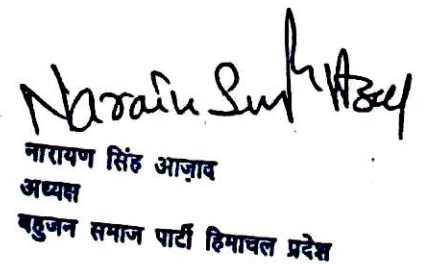 Narain Singh Azad
नारायण सिंह आज़ाद
अध्यक्ष
बहुजन समाज पार्टी हिमाचल प्रदेश